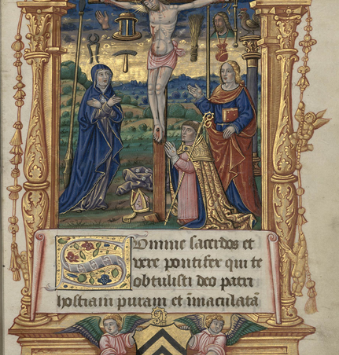 Summe sacerdos et
vere pontifex qui te
obtulisti deo patri
hostiam puram et īmaculatā